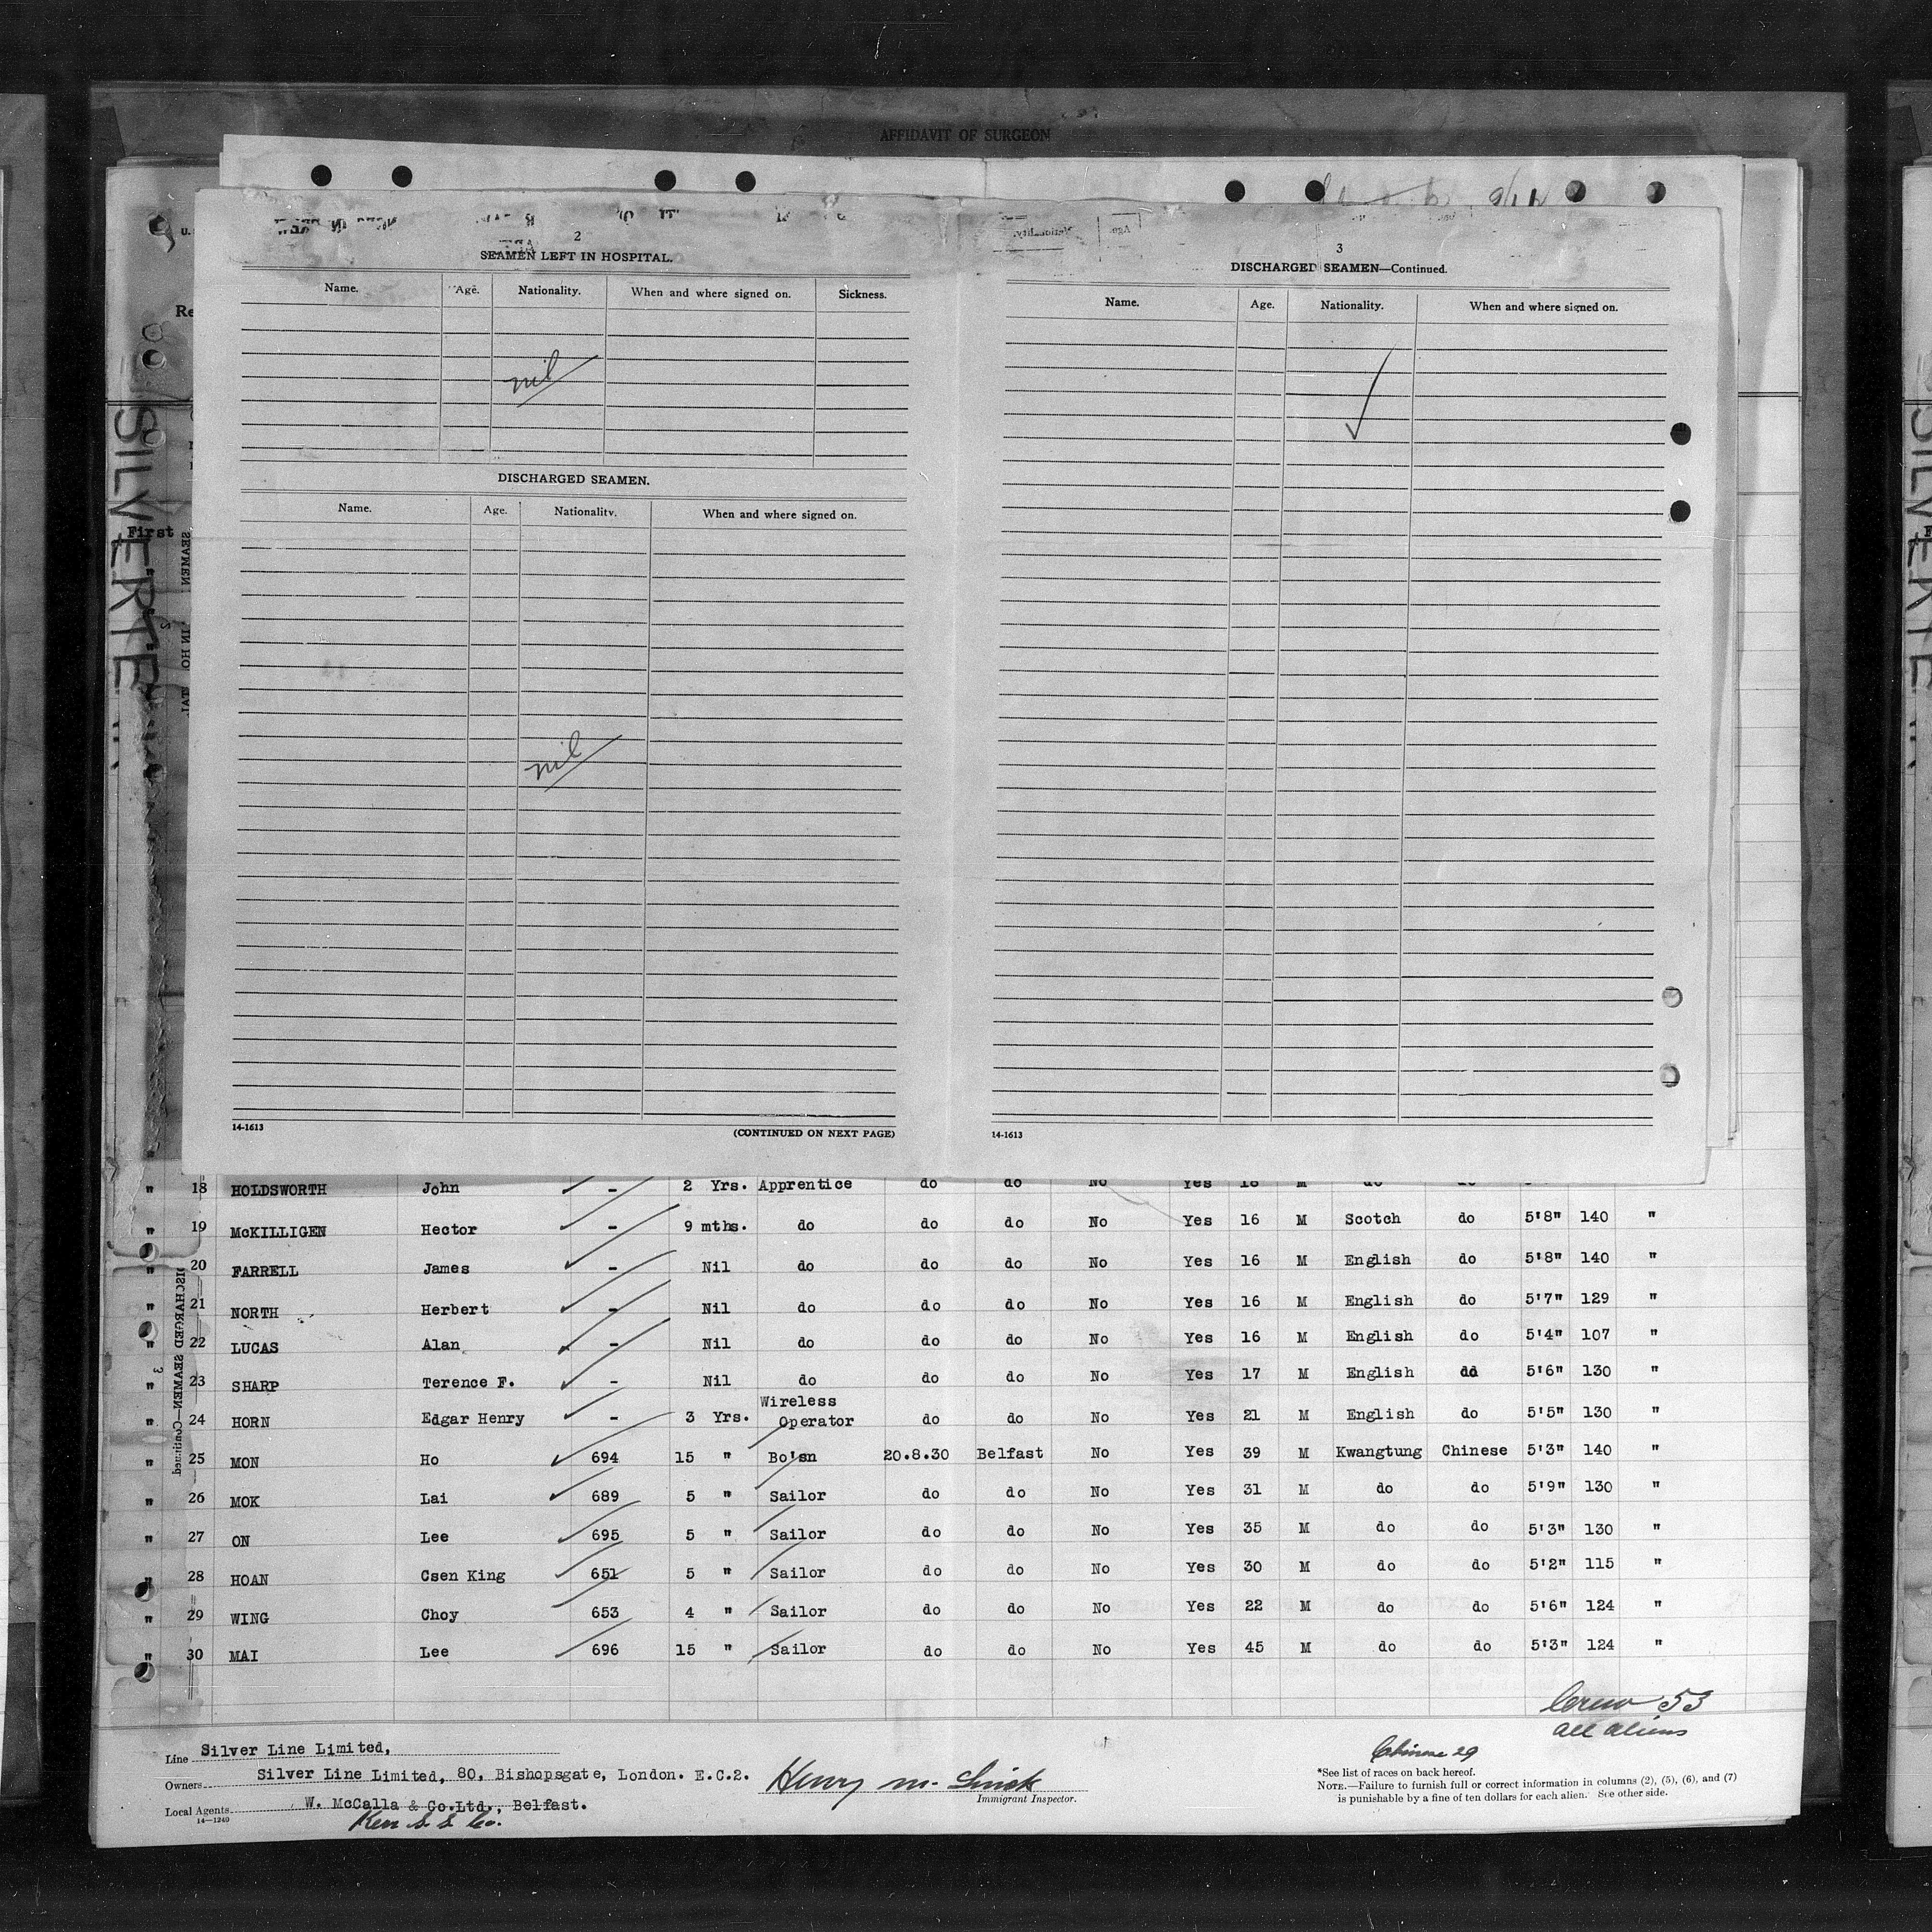 AFFIDAVIT OF SURGEON
2
SEAMEN LEFT IN HOSPITAL.
Name. Age. Nationality. When and where signed on. Sickness.
nil
DISCHARGED SEAMEN.
Name. Age. Nationality. When and where signed on.
nil
14-1613 (CONTINUED ON NEXT PAGE)
3
DISCHARGED SEAMEN—Continued.
Name. Age. Nationality. When and where signed on.
14-1613
SILVER
First
" 18 HOLDSWORTH John - 2 Yrs. Apprentice do do No Yes 18 M do do
" 19 McKILLIGEN Hector - 9 mths. do do do No Yes 16 M Scotch do 5'8" 140 "
" 20 FARRELL James - Nil do do do No Yes 16 M English do 5'8" 140 "
" 21 NORTH Herbert - Nil do do do No Yes 16 M English do 5'7" 129 "
" 22 LUCAS Alan - Nil do do do No Yes 16 M English do 5'4" 107 "
" 23 SHARP Terence F. - Nil do do do No Yes 17 M English do 5'6" 130 "
" 24 HORN Edgar Henry - 3 Yrs. Wireless Operator do do No Yes 21 M English do 5'5" 130 "
" 25 MON Ho 694 15 " Bo'sn 20.8.30 Belfast No Yes 39 M Kwangtung Chinese 5'3" 140 "
" 26 MOK Lai 689 5 " Sailor do do No Yes 31 M do do 5'9" 130 "
" 27 ON Lee 695 5 " Sailor do do No Yes 35 M do do 5'3" 130 "
" 28 HOAN Csen King 651 5 " Sailor do do No Yes 30 M do do 5'2" 115 "
" 29 WING Choy 653 4 " Sailor do do No Yes 22 M do do 5'6" 124 "
" 30 MAI Lee 696 15 " Sailor do do No Yes 45 M do do 5'3" 124 "
Crew 53
all aliens
Chinese 29
Line Silver Line Limited,
Owners Silver Line Limited, 80, Bishopsgate, London. E.C.2.
Local Agents W. McCalla & Co.Ltd., Belfast.
14—1240
Kerr S. S. Co.
Henry M.
Immigrant Inspector.
*See list of races on back hereof.
NOTE.—Failure to furnish full or correct information in columns (2), (5), (6), and (7)
is punishable by a fine of ten dollars for each alien. See other side.